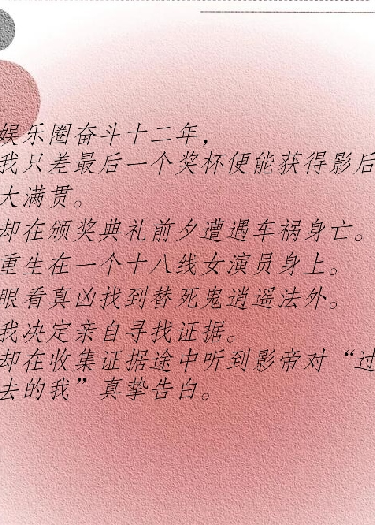 娱乐圈奋斗十二年，
我只差最后一个奖杯便能获得影后
大满贯。
却在颁奖典礼前夕遭遇车祸身亡。
重生在一个十八线女演员身上。
眼看真凶找到替死鬼逍遥法外。
我决定亲自寻找证据。
却在收集证据途中听到影帝对“过
去的我”真挚告白。